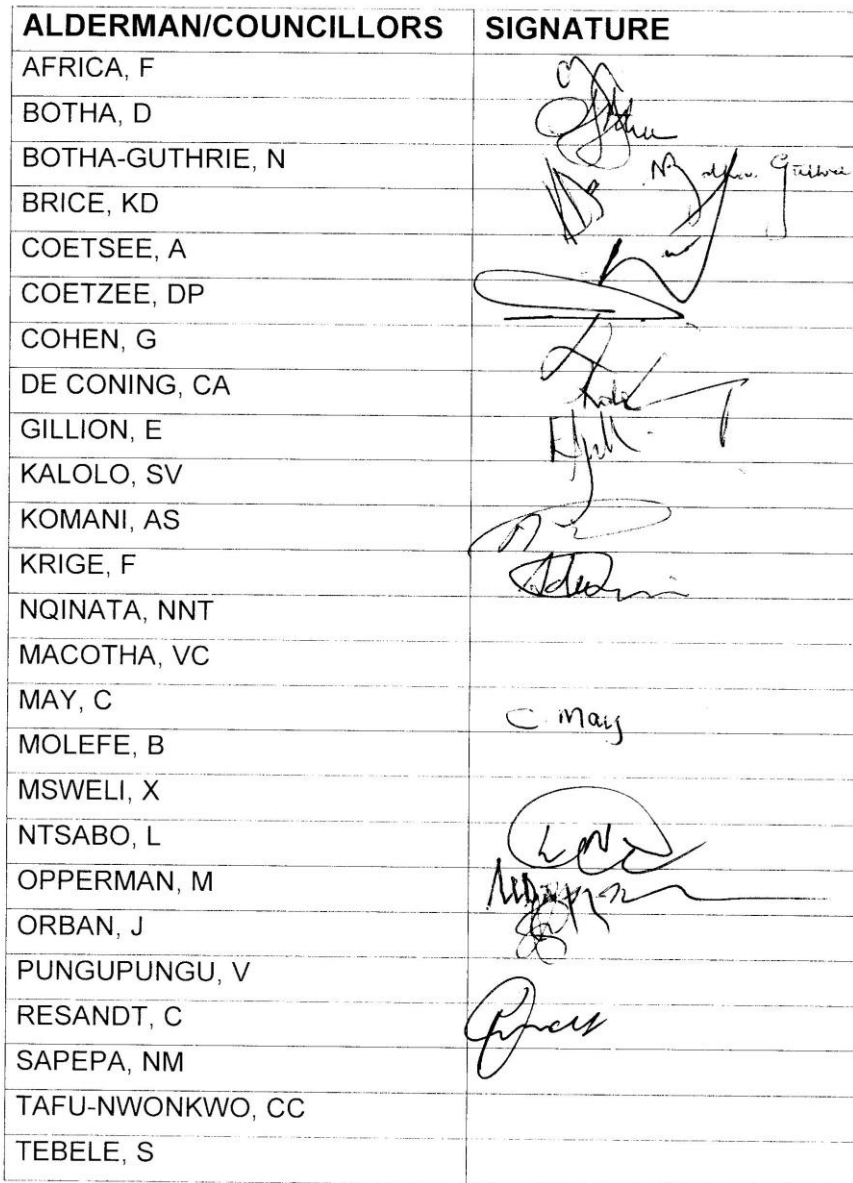 ALDERMAN/COUNCILLORS SIGNATURE
AFRICA, F
BOTHA, D
BOTHA-GUTHRIE, N
BRICE, KD
COETSEE, A
COETZEE, DP
COHEN, G
DE CONING, CA
GILLION, E
KALOLO, SV
KOMANI, AS
KRIGE, F
NQINATA, NNT
MACOTHA, VC
MAY, C C May
MOLEFE, B
MSWELI, X
NTSABO, L
OPPERMAN, M
ORBAN, J
PUNGUPUNGU, V
RESANDT, C
SAPEPA, NM
TAFU-NWONKWO, CC
TEBELE, S